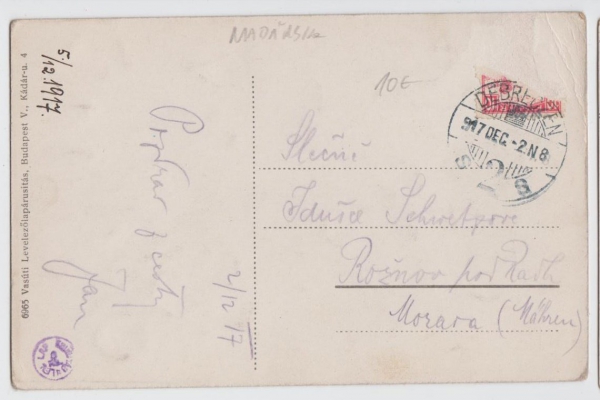 MAĎARSKO
10€
5/12.1917.
DEBRECZEN
917 DEC.-2.N.8
2
Slečně
Idušce Schwetpove
Rožnov pod Radh
Morava (Mähren)
Pozdrav z cesty
Jan
2/12 17
6965 Vasúti Levelezőlapárusítás, Budapest V., Kádár-u. 4